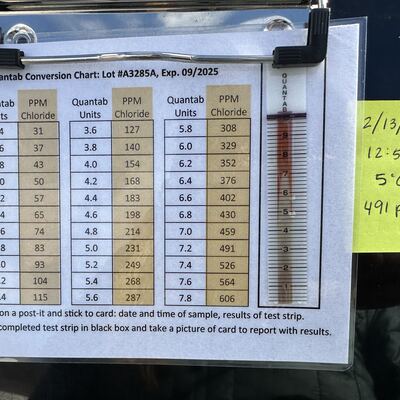 uantab Conversion Chart: Lot #A3285A, Exp. 09/2025
Quantab Units PPM Chloride Quantab Units PPM Chloride Quantab Units PPM Chloride
.4 31 3.6 127 5.8 308
.6 37 3.8 140 6.0 329
.8 43 4.0 154 6.2 352
.0 50 4.2 168 6.4 376
.2 57 4.4 183 6.6 402
.4 65 4.6 198 6.8 430
.6 74 4.8 214 7.0 459
.8 83 5.0 231 7.2 491
.0 93 5.2 249 7.4 526
.2 104 5.4 268 7.6 564
.4 115 5.6 287 7.8 606
QUANTAB
9
8
7
6
5
4
3
2
1
on a post-it and stick to card: date and time of sample, results of test strip.
completed test strip in black box and take a picture of card to report with results.
2/13/
12:5
5°C
491 p